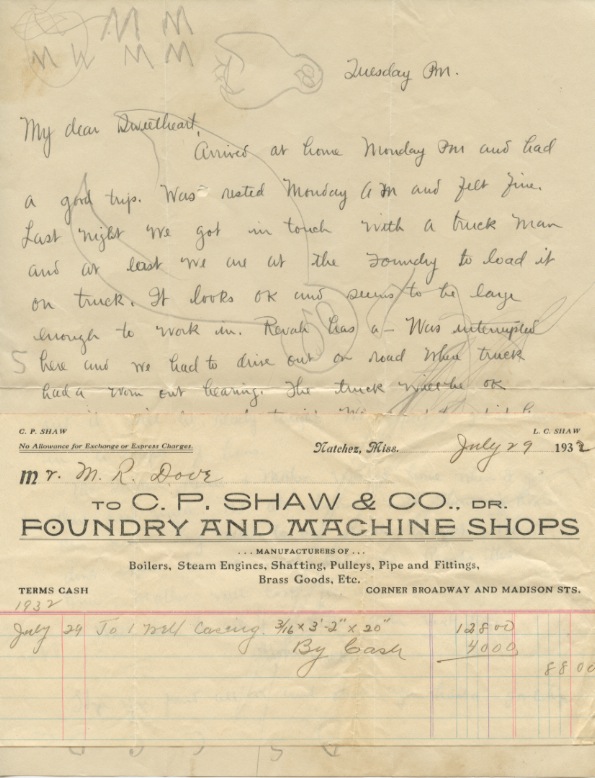 M M
M W M M
Tuesday Pm.
My dear Sweetheart,
Arrived at home Monday Pm and had
a good trip. Was rested Monday AM and felt fine.
Last night we got in touch with a truck man
and at last we are at the Foundry to load it
on truck. It looks OK and seems to be large
enough to work in. Revah has a – Was interrupted
5 here and we had to drive out on road when truck
had a worn out bearing. The truck will be OK
C. P. SHAW
L. C. SHAW
No Allowance for Exchange or Express Charges.
Natchez, Miss. July 29 1932
Mr. M. R. Dove
TO C. P. SHAW & CO., DR.
FOUNDRY AND MACHINE SHOPS
... MANUFACTURERS OF ...
Boilers, Steam Engines, Shafting, Pulleys, Pipe and Fittings,
Brass Goods, Etc.
TERMS CASH
CORNER BROADWAY AND MADISON STS.
1932
July 29 To 1 Well Casing. 3/16 x 3'-2" x 20" 128 00
By Cash 40 00
88 00